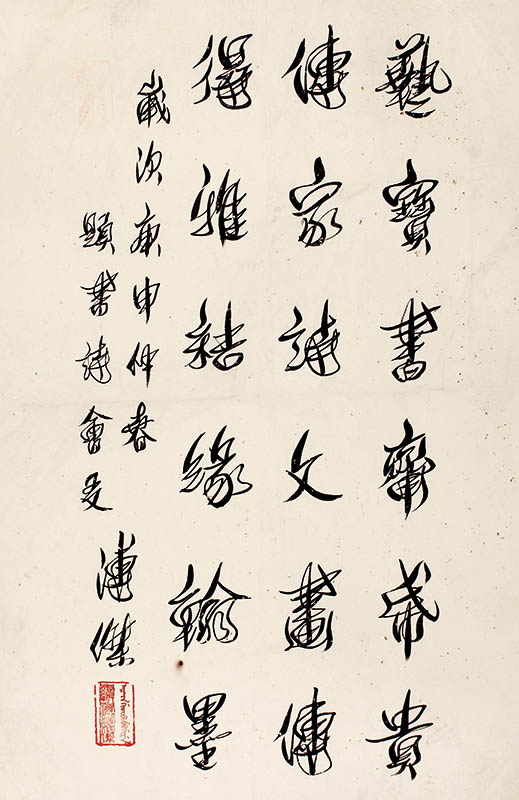 藝寶書齋希貴
傳家文畫傳
得雅結緣翰墨
歲次庚申仲春
題書會友
溥傑